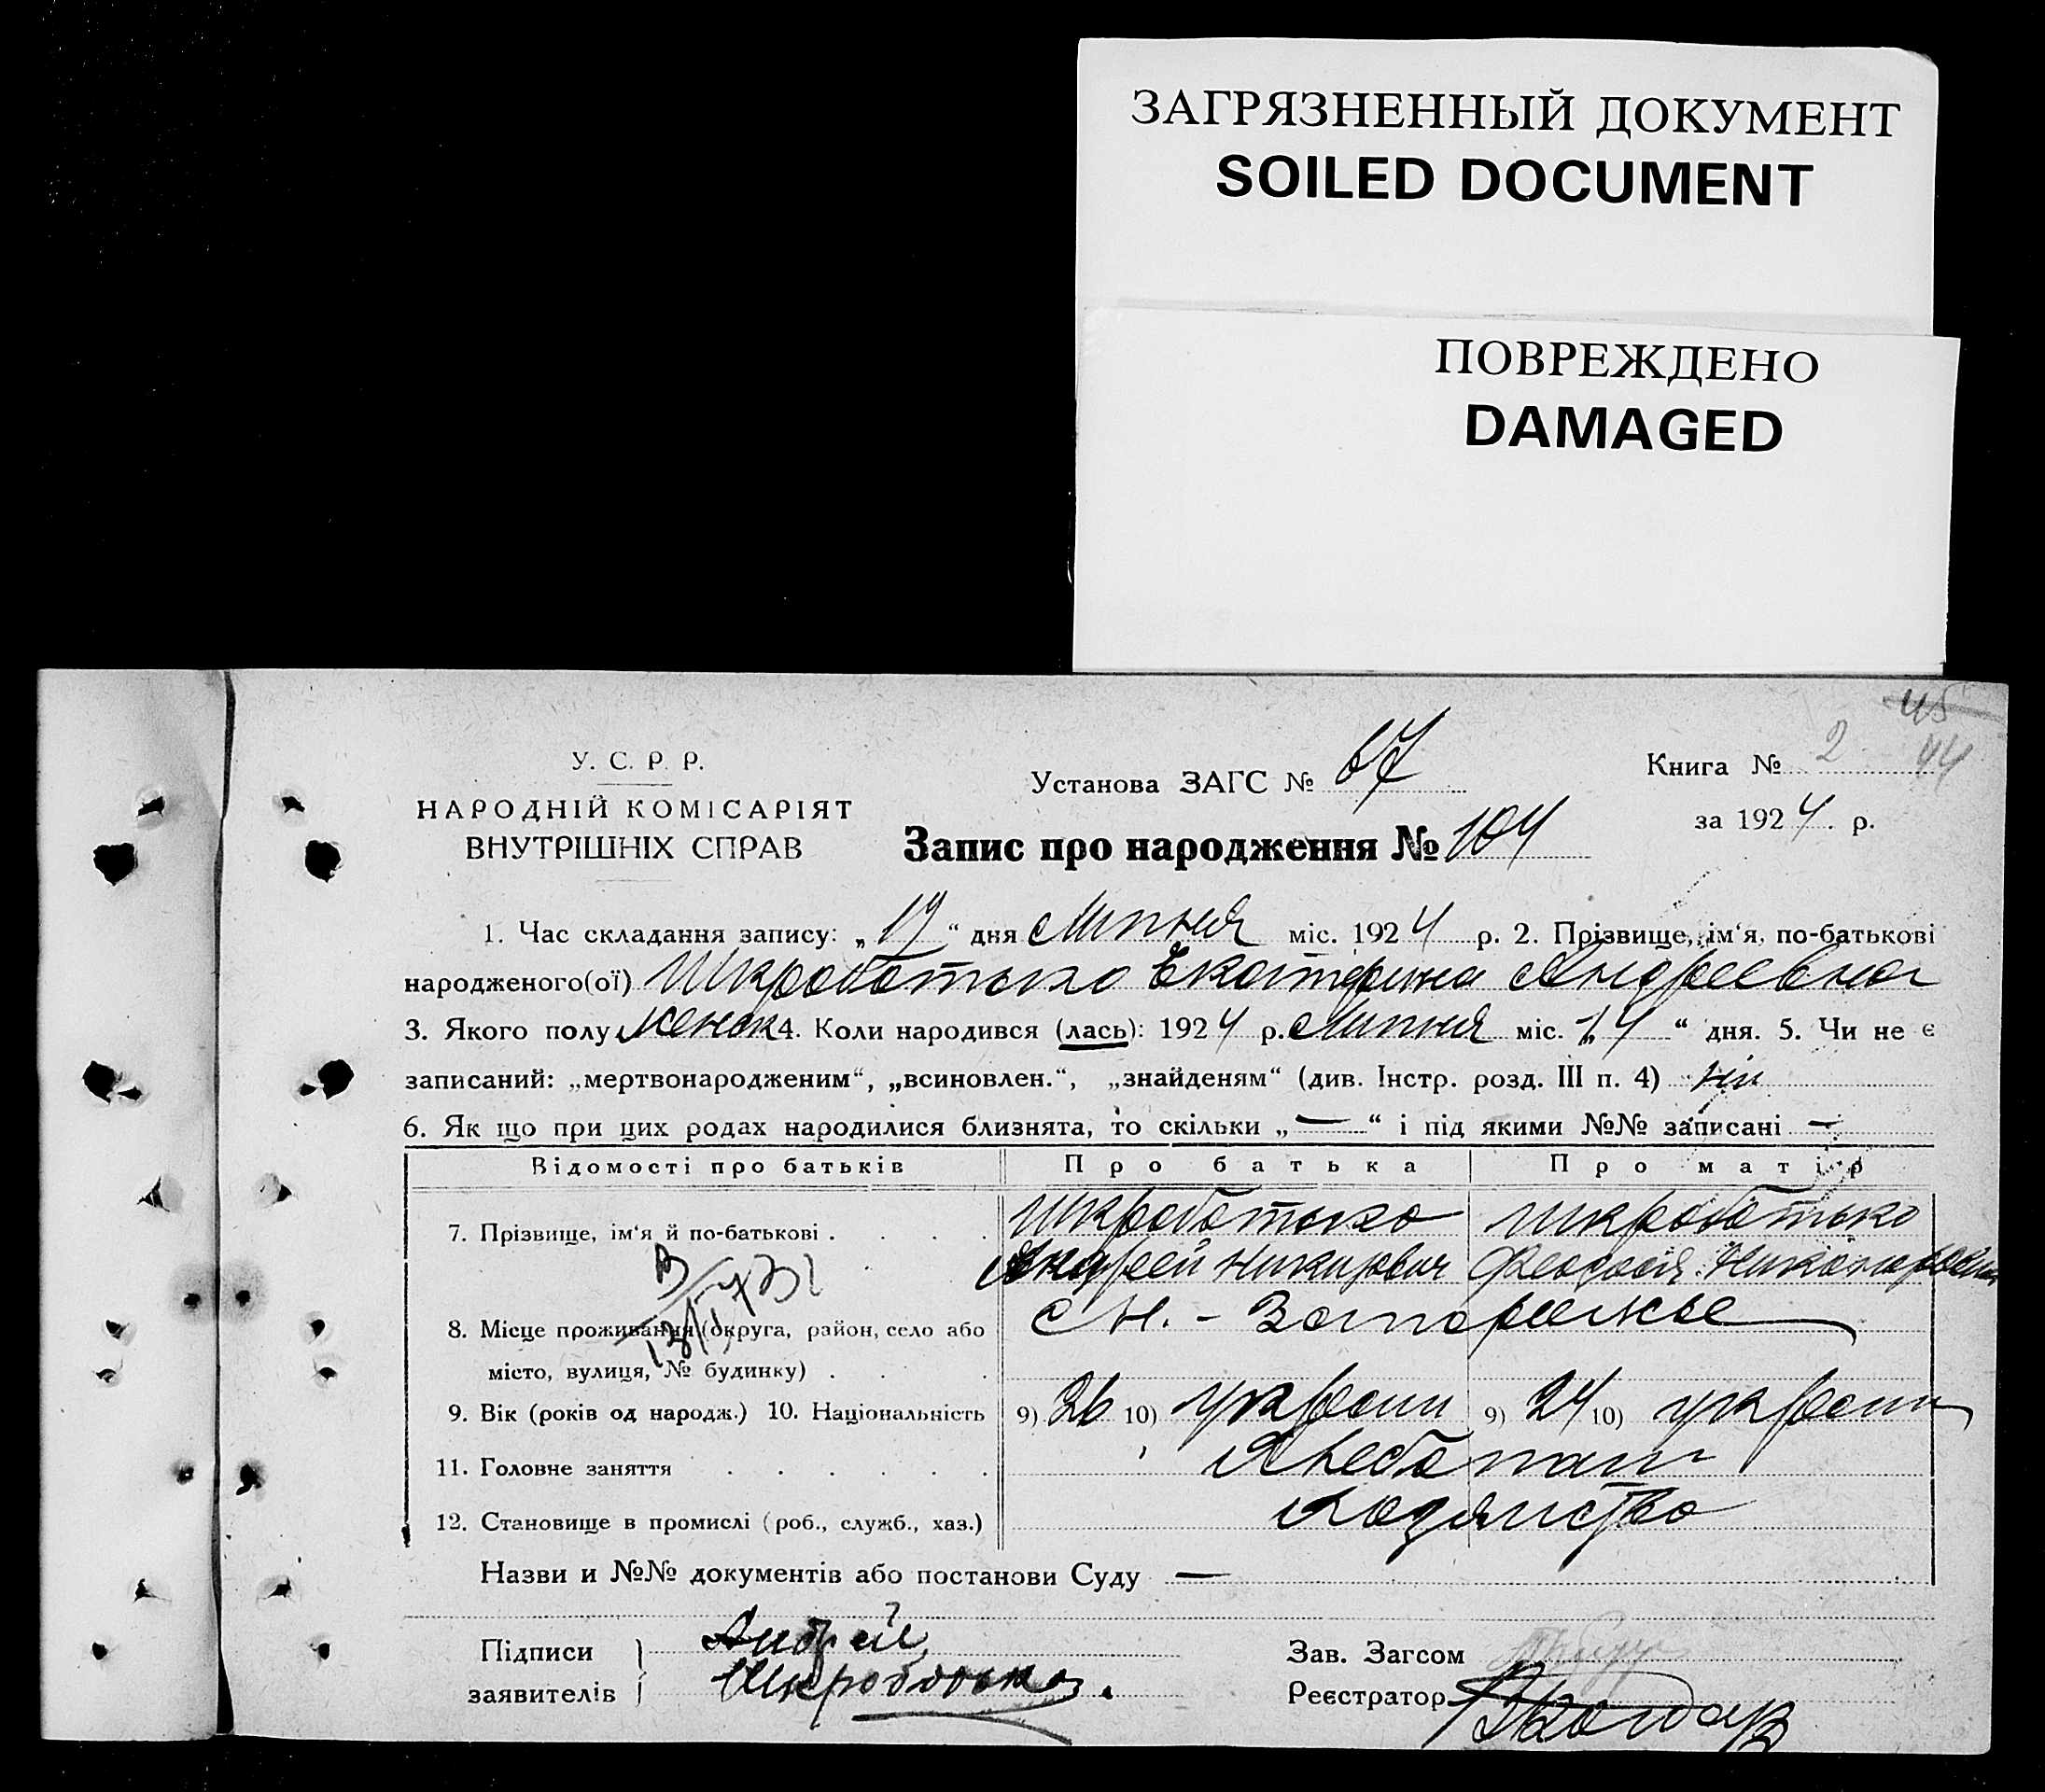 ЗАГРЯЗНЕННЫЙ ДОКУМЕНТ
SOILED DOCUMENT
ПОВРЕЖДЕНО
DAMAGED
45
У. С. Р. Р.
Установа ЗАГС № 67
Книга № 2 44
НАРОДНІЙ КОМІСАРІЯТ
за 1924 р.
ВНУТРІШНІХ СПРАВ
Запис про народження № 104
1. Час складання запису: „19“ дня Липня міс. 1924 р. 2. Прізвище, ім‘я, по-батькові
народженого(ої) Шкроботько Екатерина Андреевна
3. Якого полу женск 4. Коли народився (лась): 1924 р. Липня міс. „14“ дня. 5. Чи не є
записаний: „мертвонародженим“, „всиновлен.“, „знайденям“ (див. Інстр. розд. III п. 4) ні
6. Як що при цих родах народилися близнята, то скільки „—“ і під якими №№ записані —
Відомості про батьків Про батька Про матір
Шкроботько Шкроботько
7. Прізвище, ім‘я й по-батькові
Андрей Никифович Феодосія
с Н. - Запорожье
8. Місце проживання (округа, район, село або
місто, вулиця, № будинку)
9. Вік (років од народж.) 10. Національність 9) 26 10) україн 9) 24 10) україн
11. Головне заняття Хлебопаш
12. Становище в промислі (роб., служб., хаз.) Хозяйство
Назви и №№ документів або постанови Суду —
Підписи Андрей
Зав. Загсом
заявителів Шкроботько.
Реєстратор